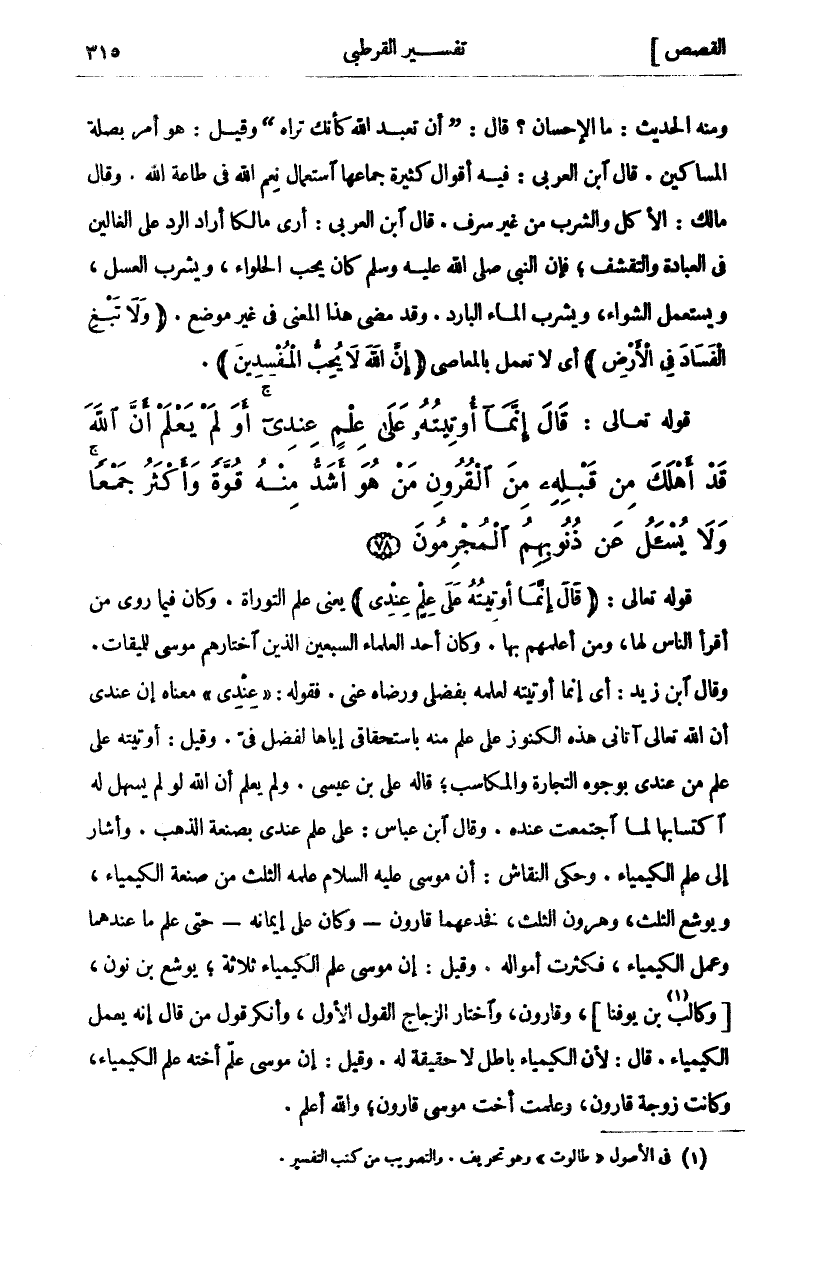 القصص ] تفسير القرطبى ٣١٥
ومنه الحديث : ما الإحسان ؟ قال : " أن تعبد الله كأنك تراه " وقيل : هو أمر بصلة
المساكين . قال آبن العربى : فيه أقوال كثيرة جماعها آستعمال نِعم الله فى طاعة الله . وقال
مالك : الأكل والشرب من غير سرف . قال آبن العربى : أرى مالكا أراد الرد على الغالين
فى العبادة والتقشف ؛ فإن النبى صلى الله عليه وسلم كان يحب الحلواء ، ويشرب العسل ،
ويستعمل الشواء، ويشرب الماء البارد . وقد مضى هذا المعنى فى غير موضع . ( وَلَا تَبْغِ
الْفَسَادَ فِى الْأَرْضِ ) أى لا تعمل بالمعاصى ( إِنَّ اللهَ لَا يُحِبُّ الْمُفْسِدِينَ ) .
قوله تعالى : قَالَ إِنَّمَآ أُوتِيتُهُۥ عَلَىٰ عِلْمٍ عِندِىٓ ۚ أَوَ لَمْ يَعْلَمْ أَنَّ ٱللَّهَ
قَدْ أَهْلَكَ مِن قَبْلِهِۦ مِنَ ٱلْقُرُونِ مَنْ هُوَ أَشَدُّ مِنْهُ قُوَّةً وَأَكْثَرُ جَمْعًا ۚ
وَلَا يُسْـَٔلُ عَن ذُنُوبِهِمُ ٱلْمُجْرِمُونَ ﴿٧٨﴾
قوله تعالى : ( قَالَ إِنَّمَا أُوتِيتُهُ عَلَى عِلْمٍ عِنْدِى ) يعنى علم التوراة . وكان فيما روى من
أقرأ الناس لها، ومن أعلمهم بها . وكان أحد العلماء السبعين الذين آختارهم موسى لليقات .
وقال آبن زيد : أى إنما أوتيته لعلمه بفضلى ورضاه عنى . فقوله : « عِنْدِى » معناه إن عندى
أن الله تعالى آتانى هذه الكنوز على علم منه باستحقاقى إياها لفضل فىّ . وقيل : أوتيته على
علم من عندى بوجوه التجارة والمكاسب؛ قاله على بن عيسى . ولم يعلم أن الله لو لم يسهل له
آكتسابها لما آجتمعت عنده . وقال آبن عباس : على علم عندى بصنعة الذهب . وأشار
إلى علم الكيمياء . وحكى النقاش : أن موسى عليه السلام علمه الثلث من صنعة الكيمياء ،
ويوشع الثلث، وهرون الثلث، فخدعهما قارون — وكان على إيمانه — حتى علم ما عندهما
وعمل الكيمياء ، فكثرت أمواله . وقيل : إن موسى علم الكيمياء ثلاثة ؛ يوشع بن نون ،
[ وكالب (١) بن يوفنا ] ، وقارون، وآختار الزجاج القول الأول ، وأنكر قول من قال إنه يعمل
الكيمياء . قال : لأن الكيمياء باطل لا حقيقة له . وقيل : إن موسى علّم أخته علم الكيمياء،
وكانت زوجة قارون، وعلمت أخت موسى قارون؛ والله أعلم .
(١) فى الأصول « طالوت » وهو تحريف . والتصويب من كتب التفسير .